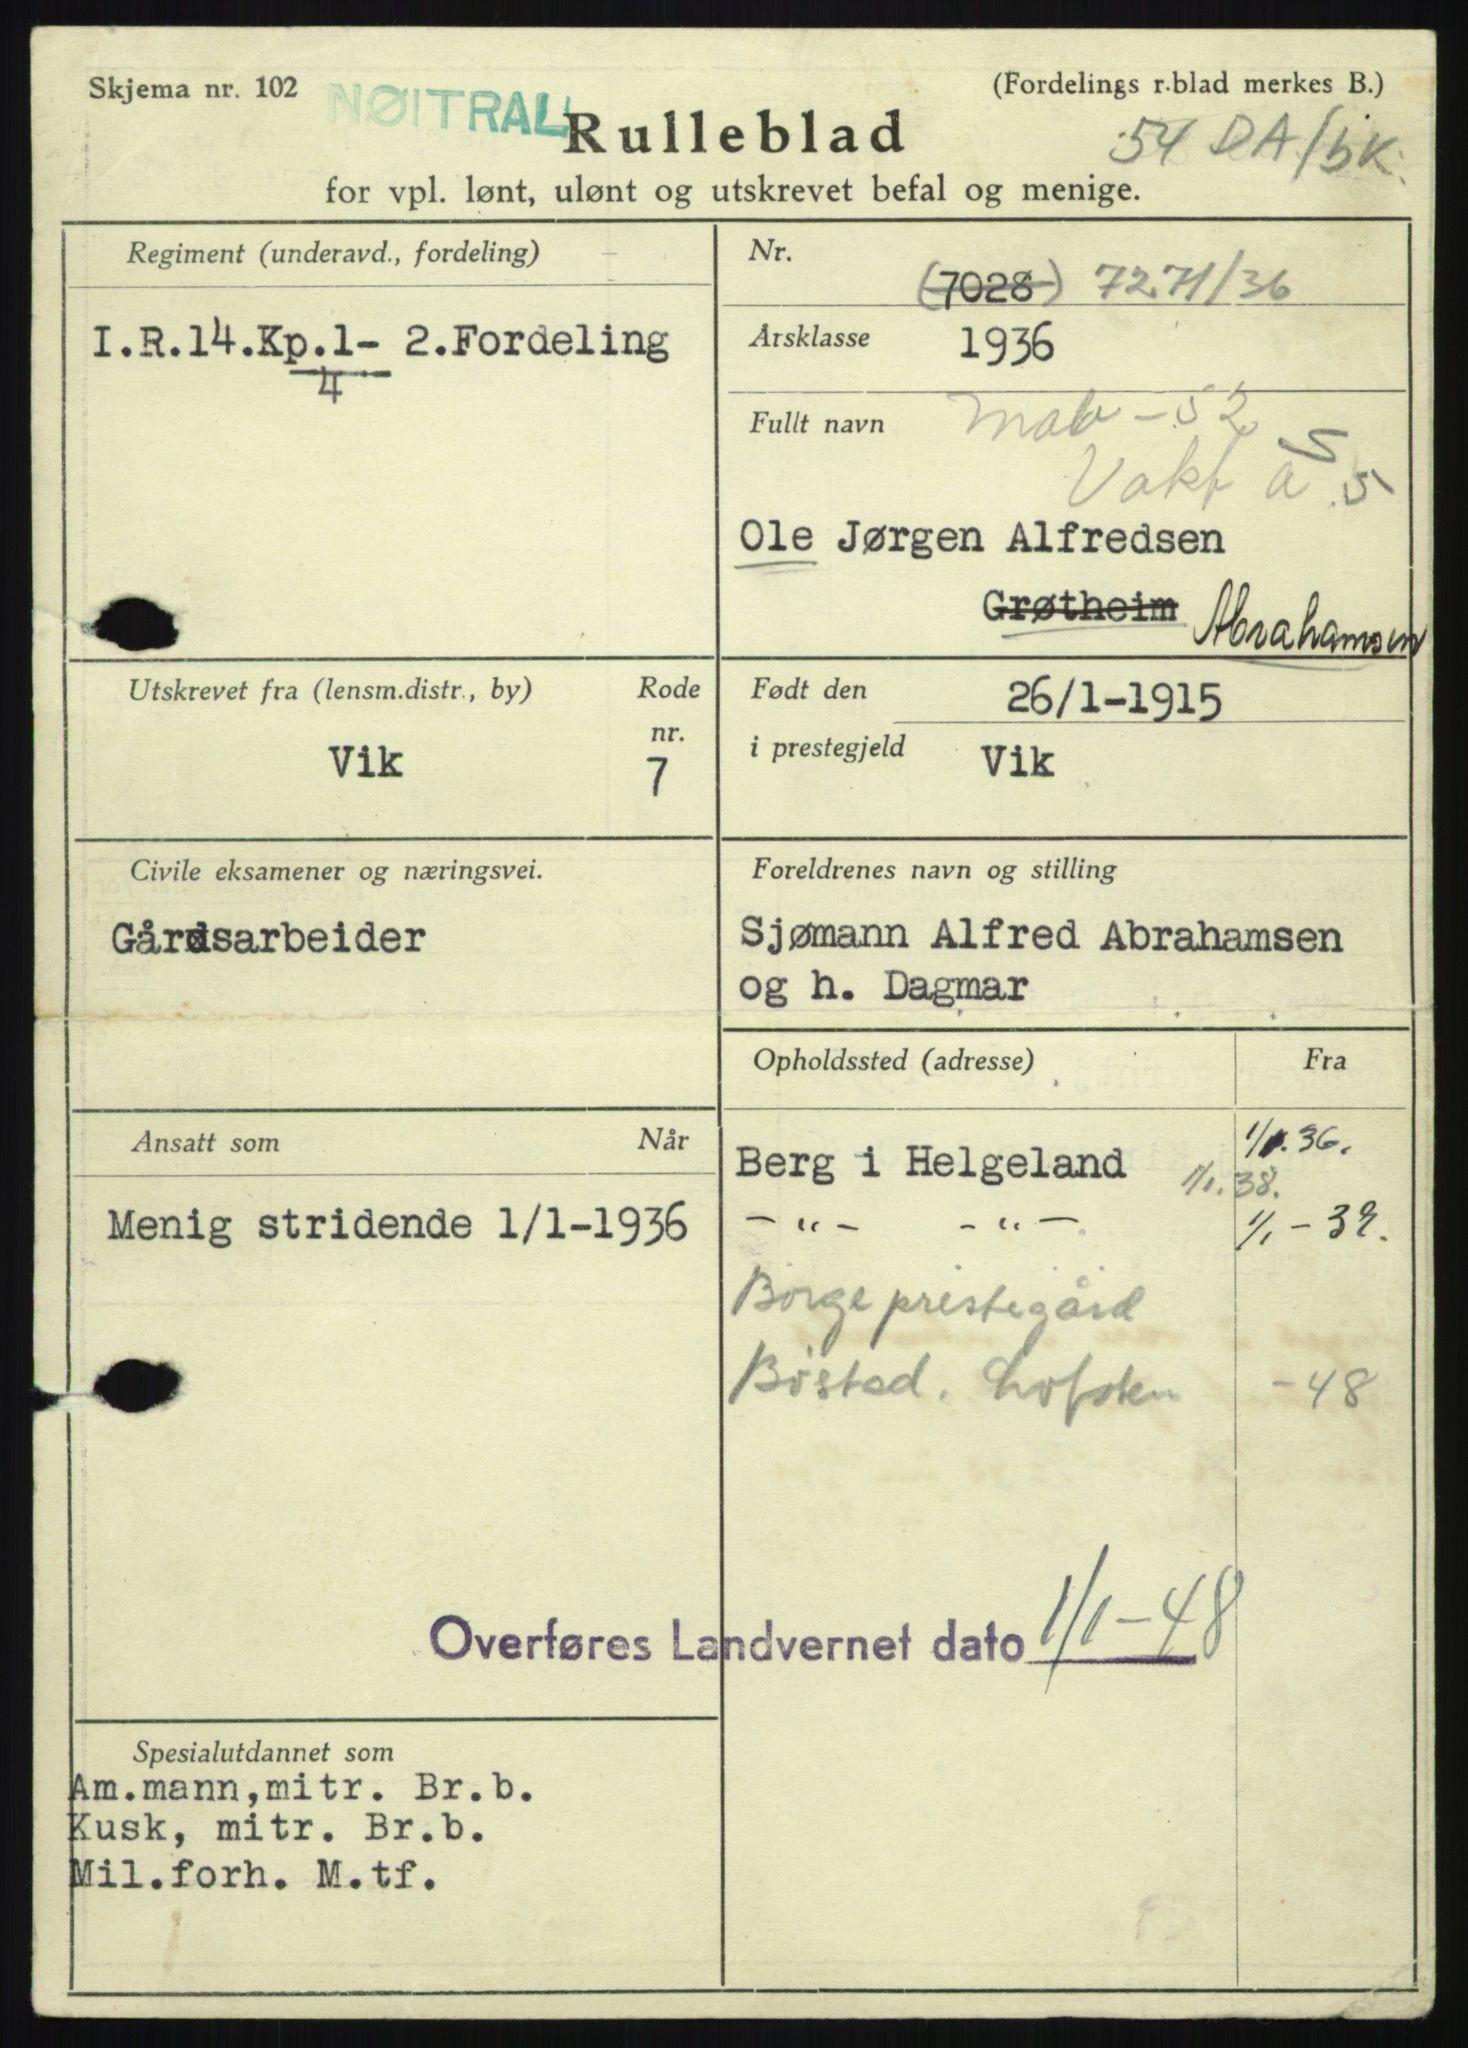 Skjema nr. 102
NØITRAL
(Fordelings r.blad merkes B.)
Rulleblad
54 DA/bk.
for vpl. lønt, ulønt og utskrevet befal og menige.
Regiment (underavd., fordeling)
I.R.14.Kp.1- 2.Fordeling
4
Nr.
(7028) 7271/36
Årsklasse 1936
Fullt navn
Mob-52
Vakt å 5
S
Ole Jørgen Alfredsen
Grøtheim Abrahamsen
Utskrevet fra (lensm.distr., by)
Rode
nr.
Vik
7
Født den 26/1-1915
i prestegjeld Vik
Civile eksamener og næringsvei.
Gårdsarbeider
Foreldrenes navn og stilling
Sjømann Alfred Abrahamsen
og h. Dagmar
Ansatt som Når
Menig stridende 1/1-1936
Opholdssted (adresse) Fra
Berg i Helgeland 1/1.36.
1/1.38.
-"- -"- 1/1-39.
Borge prestegård
Bøstad. Lofoten -48
Overføres Landvernet dato 1/1-48
Spesialutdannet som
Am.mann,mitr. Br.b.
Kusk, mitr. Br.b.
Mil.forh. M.tf.